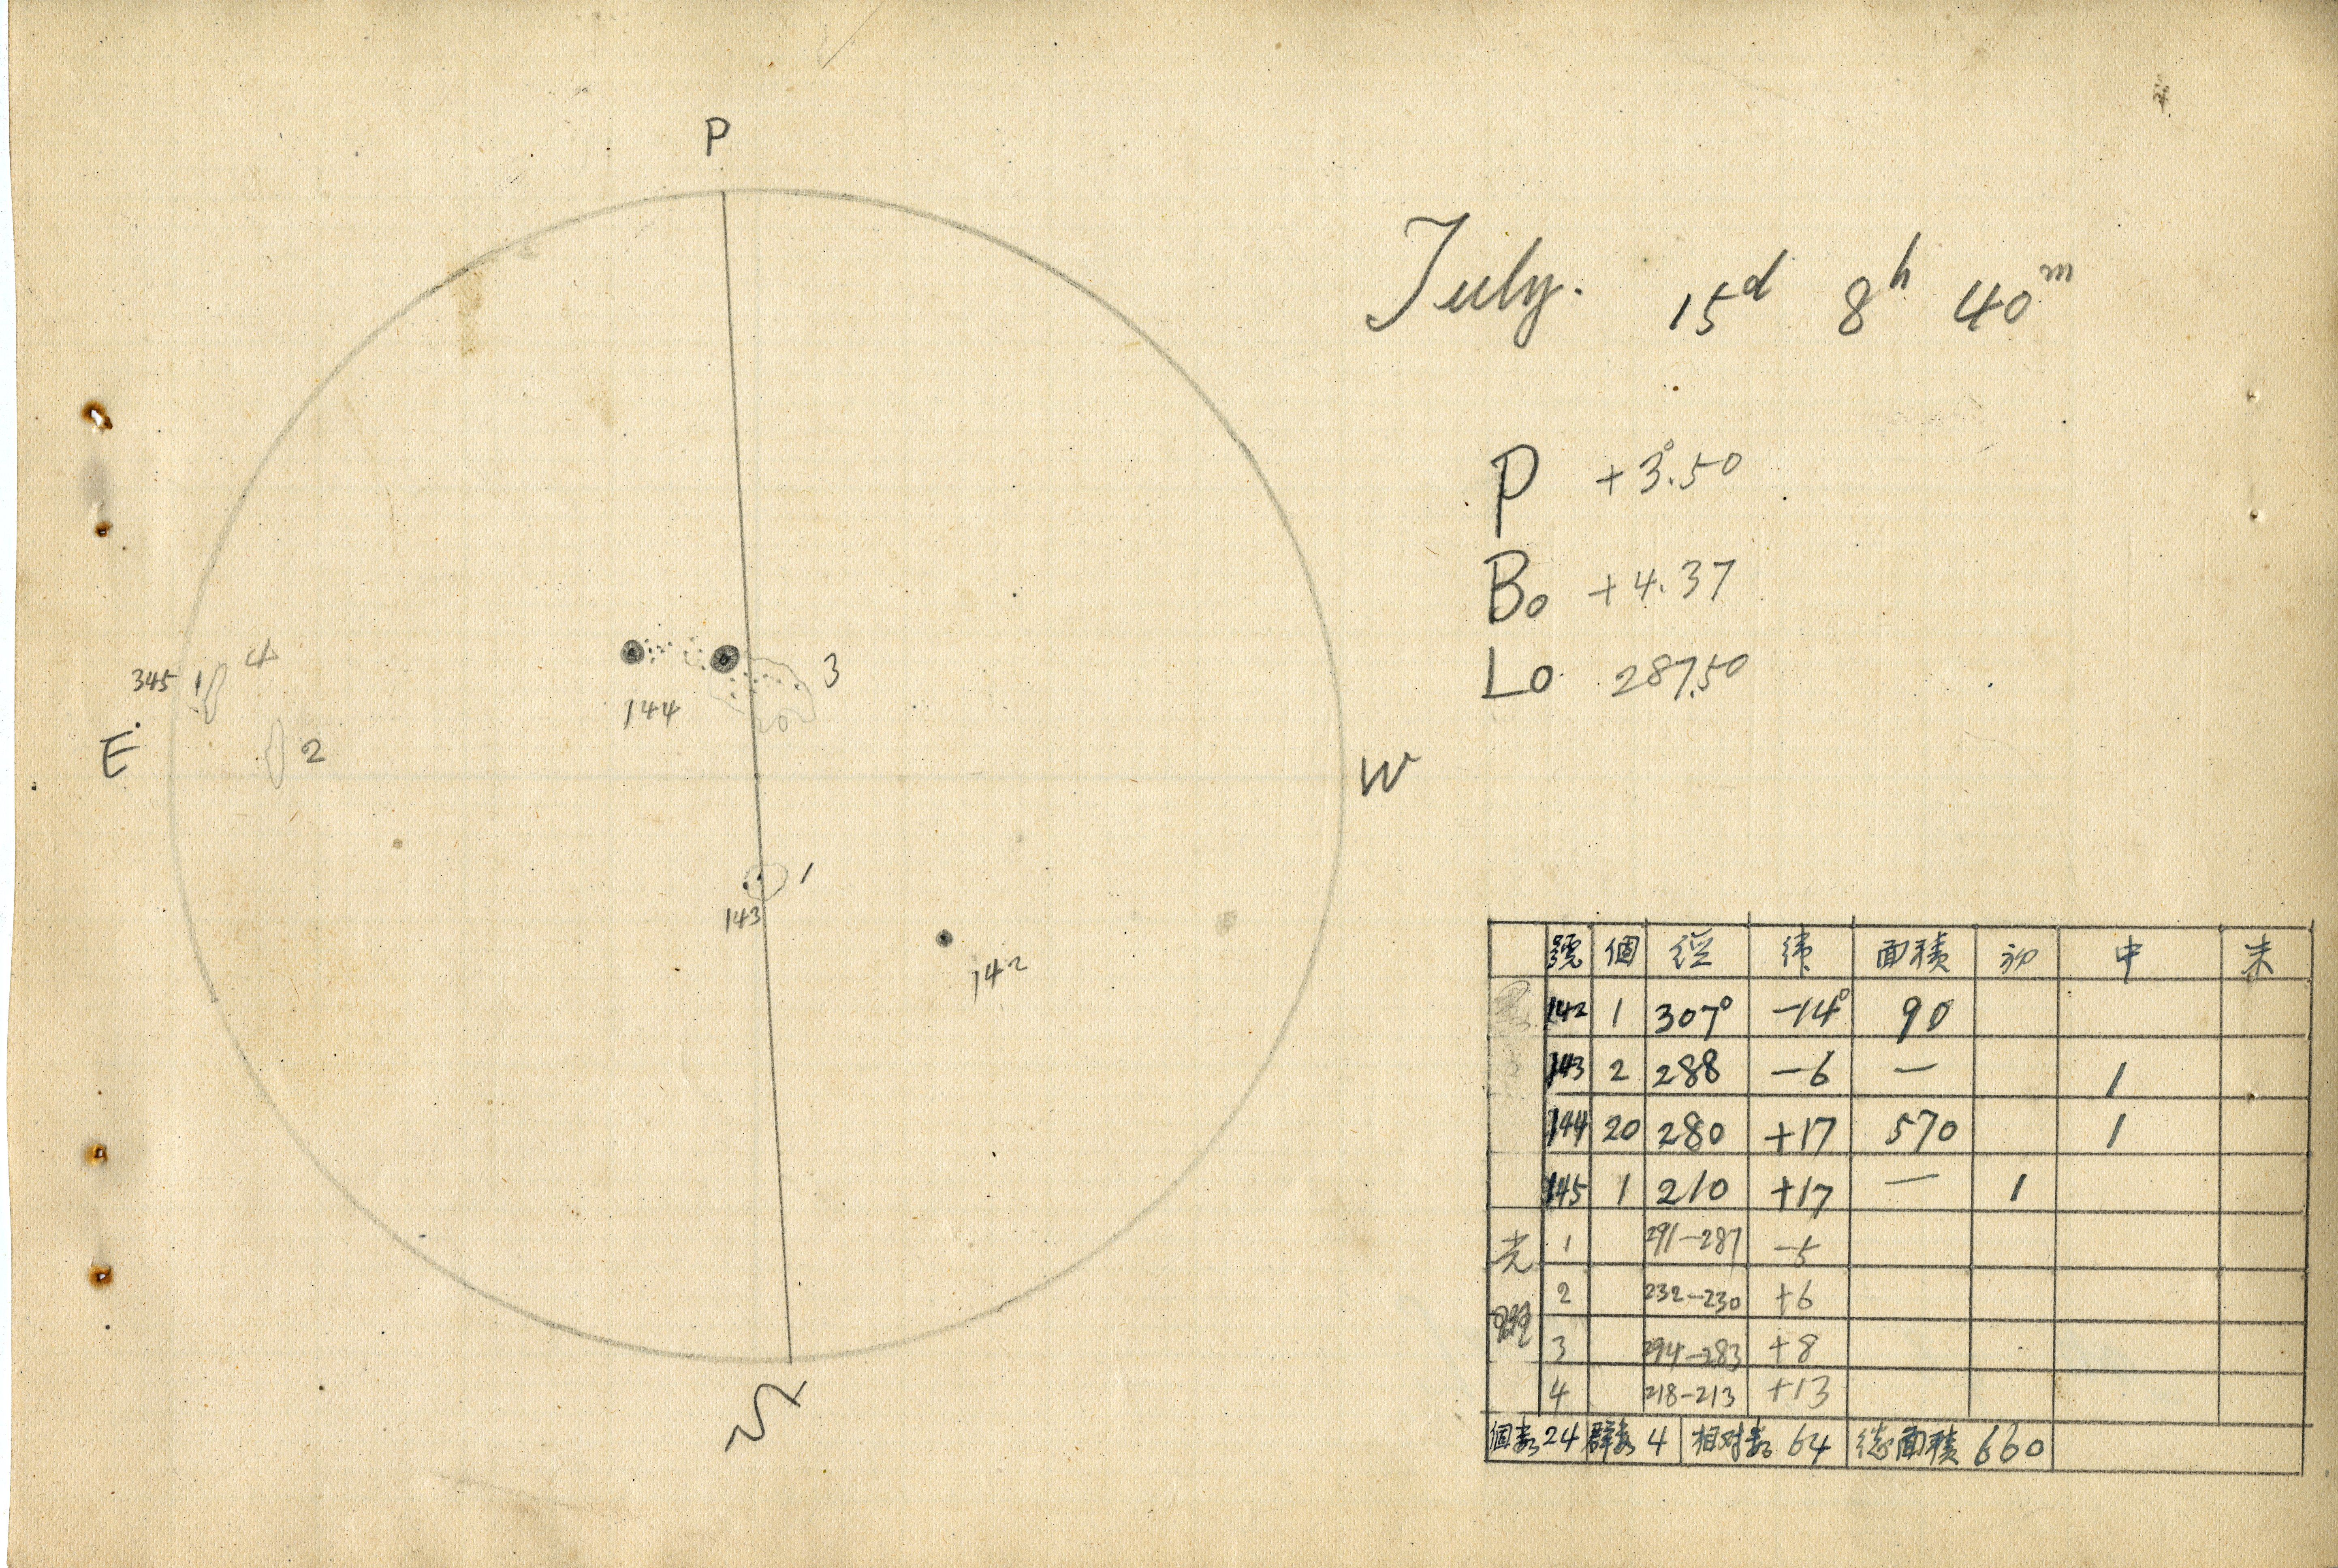 P
July. 15d 8h 40m
P +3°.50
B0 +4.37
L0 287.50
4
345 1
3
144
E
2
W
1
143
142
號 個 経 緯 面積 初 中 末
142 1 307° -14° 90
143 2 288 -6 — 1
144 20 280 +17 570 1
145 1 210 +17 — 1
光 1 291-287 -5
2 232-230 +6
斑 3 294-283 +8
4 218-213 +13
個数 24 群数 4 相対数 64 総面積 660